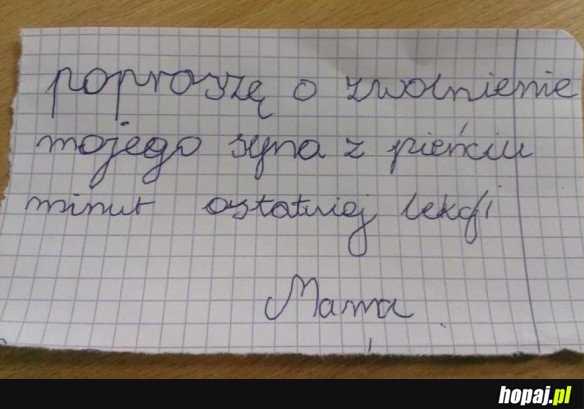 poproszę o zwolnienie
mojego syna z pieńciu
minut ostatniej lekcji
Mama
hopaj.pl